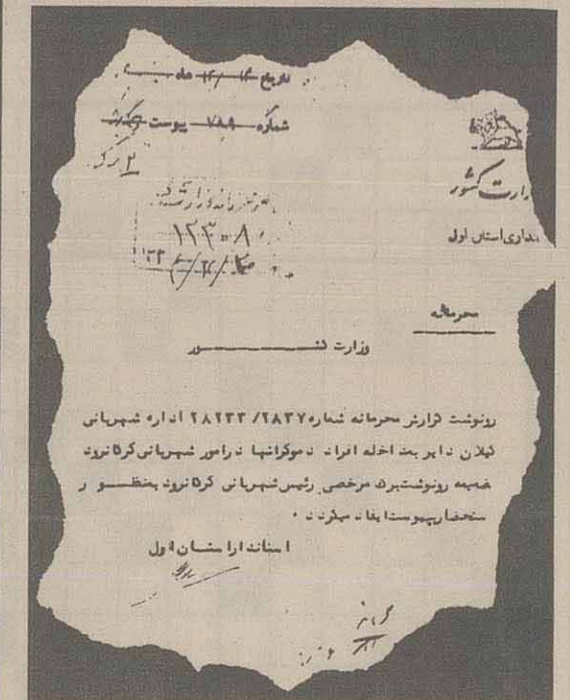 تاریخ ۱۴ ماه
شماره ۷۸۹ پیوست
۲ برگ
وزارت کشور
۱۲۳۰۸
مداری استان اول
محرمانه
وزارت کشور
رونوشت گزارش محرمانه شماره ۲۸۳۷/ ۲۸۲۳۳ اداره شهربانی
گیلان دایر بمداخله افراد دموکراتها در امور شهربانی کرگانرود
ضمیمه رونوشت برگ مرخصی رئیس شهربانی کرگانرود بمنظور
ستحضار بپیوست ایفاد میگردد ۰
استاندار استان اول